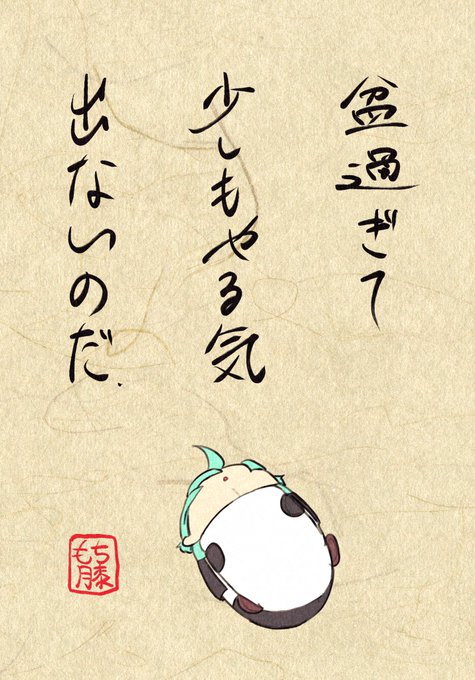 盆過ぎて
少しもやる気
出ないのだ.
もち
膝